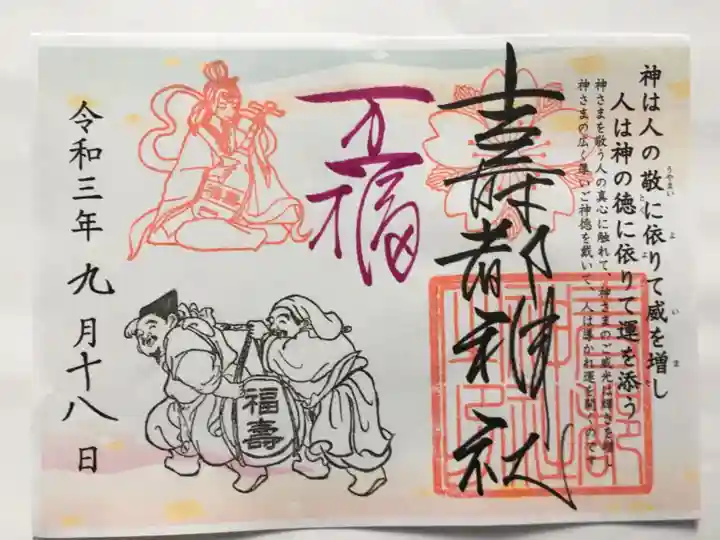 神は人の敬に依りて威を増し
うやまい よ い ま
人は神の徳に依りて運を添う
とく よ
神さまを敬う人の真心に触れて、神さまのご威光は輝きを増し
神さまの広く厚いご神徳を戴いて、人は導かれ運を開くのです
壽都神社
万福
福壽
令和三年九月十八日